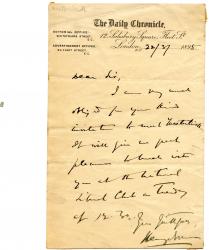 The Daily Chronicle.
EDITORIAL OFFICE:
FLEET STREET,
E.C.
ADVERTISEMENT OFFICE:
FLEET STREET,
E.C.
12, Salisbury Square, Fleet St
London, 1895
Dear Sir,
I am very much
obliged for your kind
invitation to meet
It will give me great
pleasure to lunch with
you at the National
Liberal Club on Tuesday
at 1.30. Yours faithfully
Henry Norman